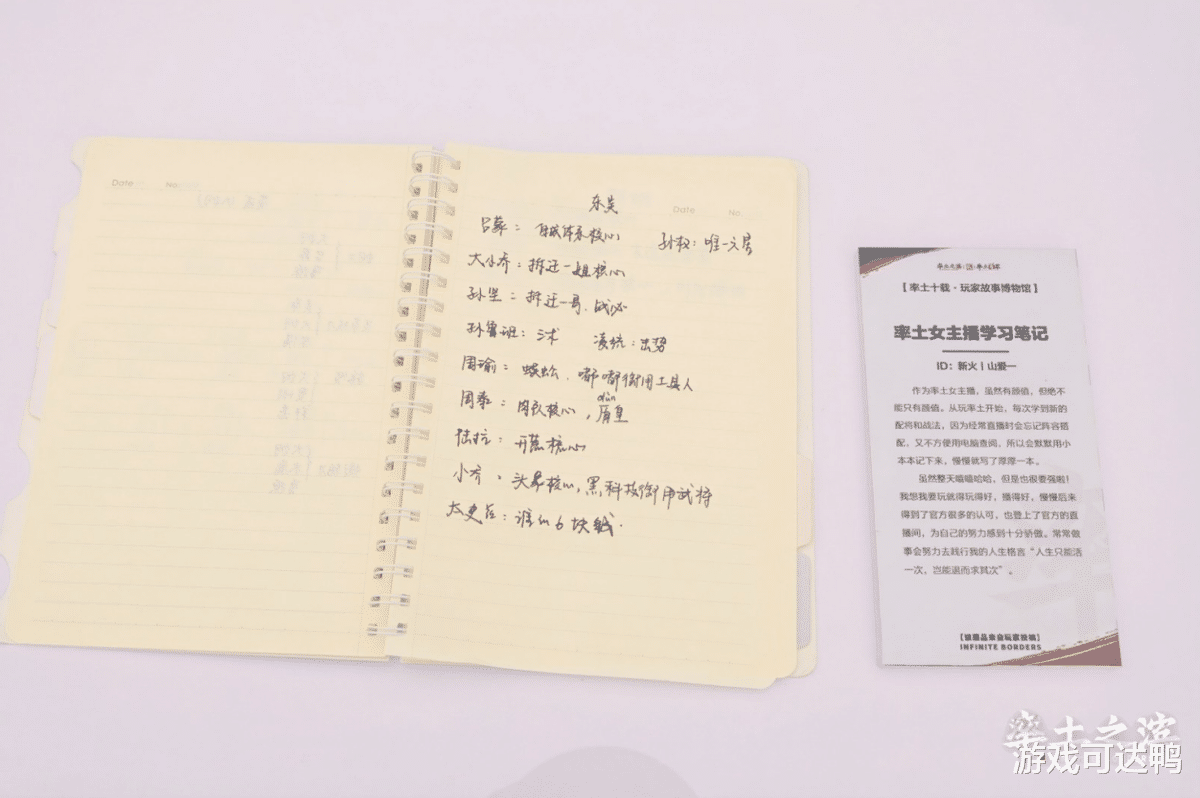 Date
No
东吴
Date
No
吕蒙：自城体系核心 孙权：唯一六房
大小乔：拆迁一姐核心
孙坚：拆迁一哥，战必
孙鲁班：三术 凌统：击势
周瑜：蜈蚣，嘟嘟御用工具人
dùn
周泰：肉衣核心，盾皇
陆抗：开荒核心
小乔：头幕核心，黑科技御用武将
太史慈：谁似6块钱.
【率土十载·玩家故事博物馆】
率土女主播学习笔记
ID：新火丨山爱一
作为率土女主播，虽然有颜值，但绝不
能只有颜值。从玩率土开始，每次学到新的
配将和战法，因为经常直播时会忘记阵容搭
配，又不方便用电脑查阅，所以会默默用小
本本记下来，慢慢就写了厚厚一本。
虽然整天嘻嘻哈哈，但是也很要强啦！
我想我要玩就得玩得好，播得好，慢慢后来
得到了官方很多的认可，也登上了官方的直
播间，为自己的努力感到十分骄傲。常常做
事会努力去践行我的人生格言“人生只能活
一次，岂能退而求其次”。
【该展品来自玩家投稿】
INFINITE BORDERS
率土之滨
游戏可达鸭